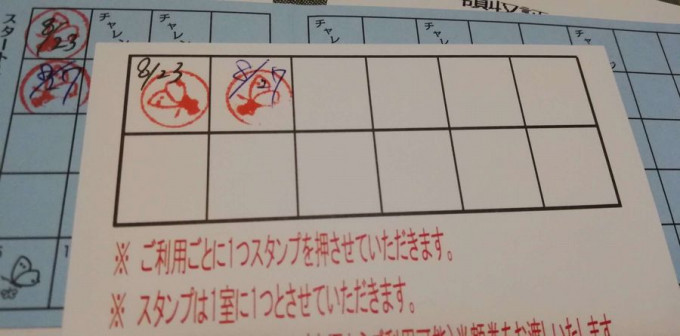 スタート
チャレン
チャレ
チャレ
チャレ
チャレ
8/23
8/27
8/23
8/27
※ ご利用ごとに1つスタンプを押させていただきます。
※ スタンプは1室に1つとさせていただきます。